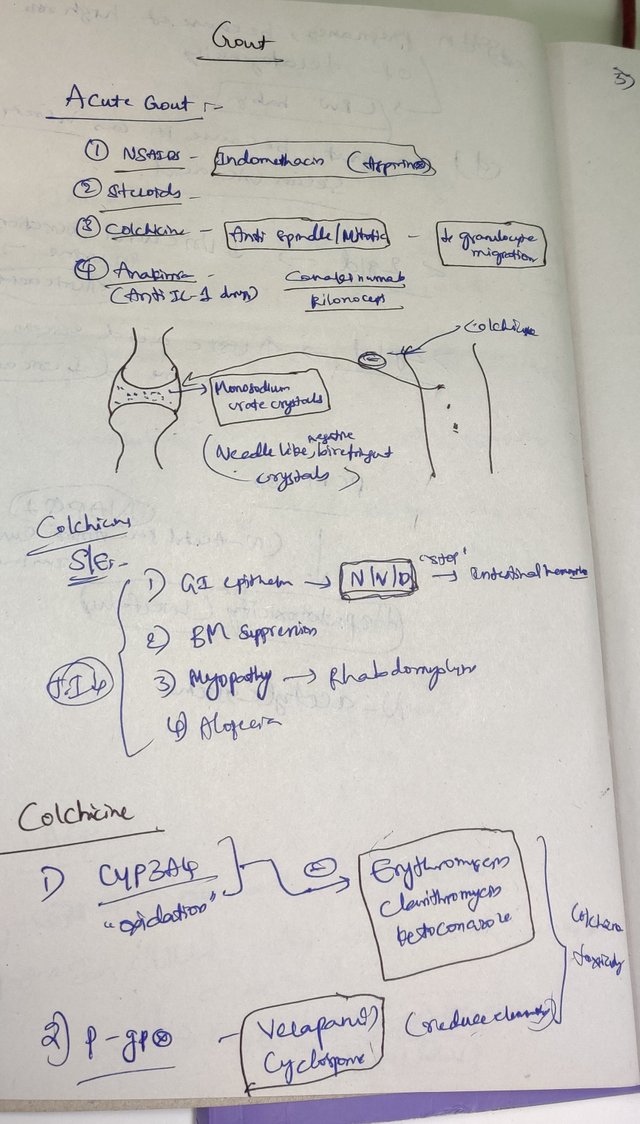 Gout
5)
Acute Gout :-
① NSAIDs - Indomethacin (Aspirin⊗)
② Steroids -
③ Colchicine - Anti spindle/Mitotic - ↓ granulocyte migration
④ Anakinra - Canakinumab
(Anti IL-1 drug) Rilonocept
Colchicine
⊖
Monosodium
urate crystals
(Needle like, negative birefringent
crystals)
Colchicine
S/E:-
1) GI epithelium → N/V/D "stop" → Intestinal
2) BM suppression
3) Myopathy → Rhabdomyolysis
4) Alopecia
Colchicine
1) CYP3A4
"oxidation"
⊖
Erythromycin
clarithromycin
ketoconazole
Colchicine
toxicity
2) P-gp⊗ - Verapamil (reduce clearance)
Cyclosporine